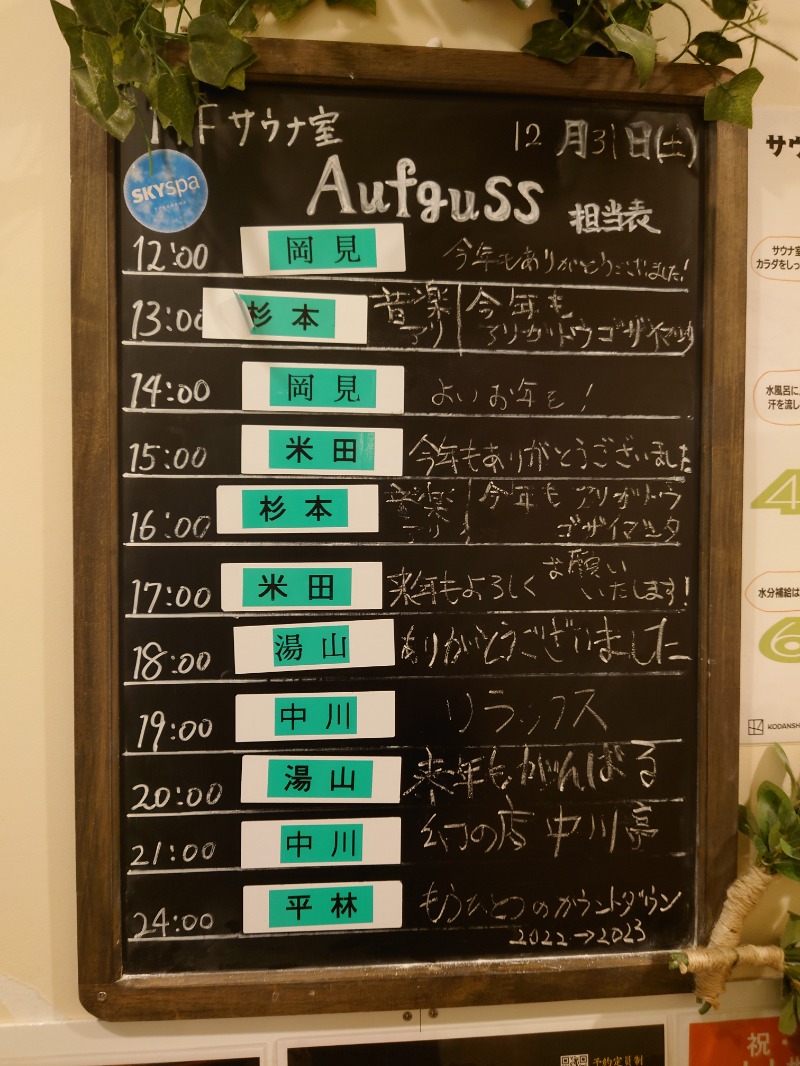 F サウナ室
12月31日(土)
SKYspa
Aufguss 担当表
12:00 岡見 今年もありがとうございました!
13:00 杉本 音楽アリ 今年も
アリガトウゴザイマシタ
14:00 岡見 よいお年を!
15:00 米田 今年もありがとうございました
16:00 杉本 音楽アリ 今年も アリガトウ
ゴザイマシタ
17:00 米田 来年もよろしく お願い
いたします!
18:00 湯山 ありがとうございました
19:00 中川 リラックス
20:00 湯山 来年もがんばる
21:00 中川 幻の店 中川亭
24:00 平林 もうひとつのカウントダウン
2022→2023
サウ
サウナ室
カラダをしっ
水風呂に
汗を流し
4
水分補給は
6
KODANSH
予約定員制
祝